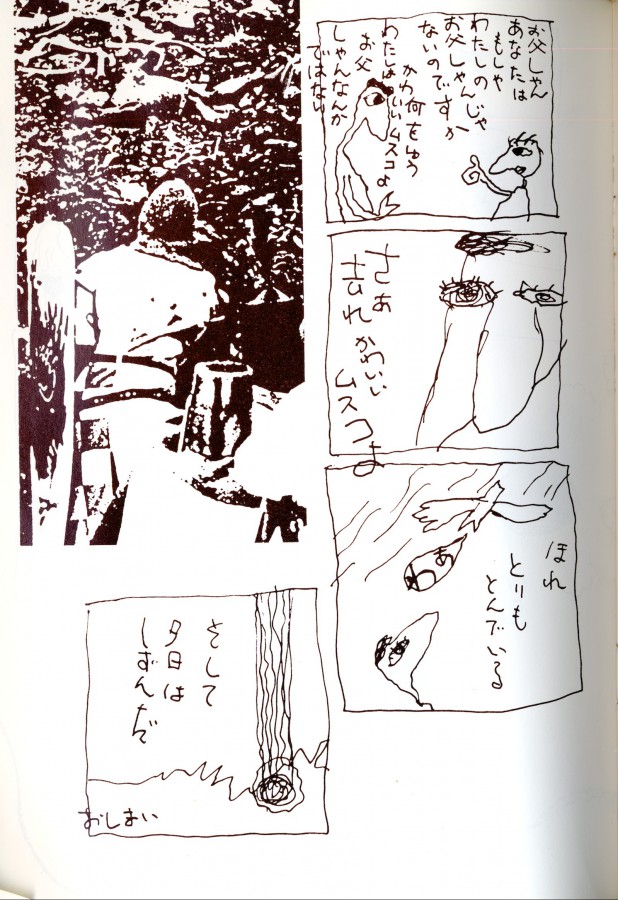 お父しゃん
あなたは
もしや
わたしの
お父しゃんじゃ
ないのですか
何をゆう
かわいいムスコよ
わたしは
お父
しゃんなんか
ではない
さあ
忘れ
かわいい
ムスコよ
ほれ
とりも
とんでいる
わぁ
そして
夕日は
しずんだ
おしまい